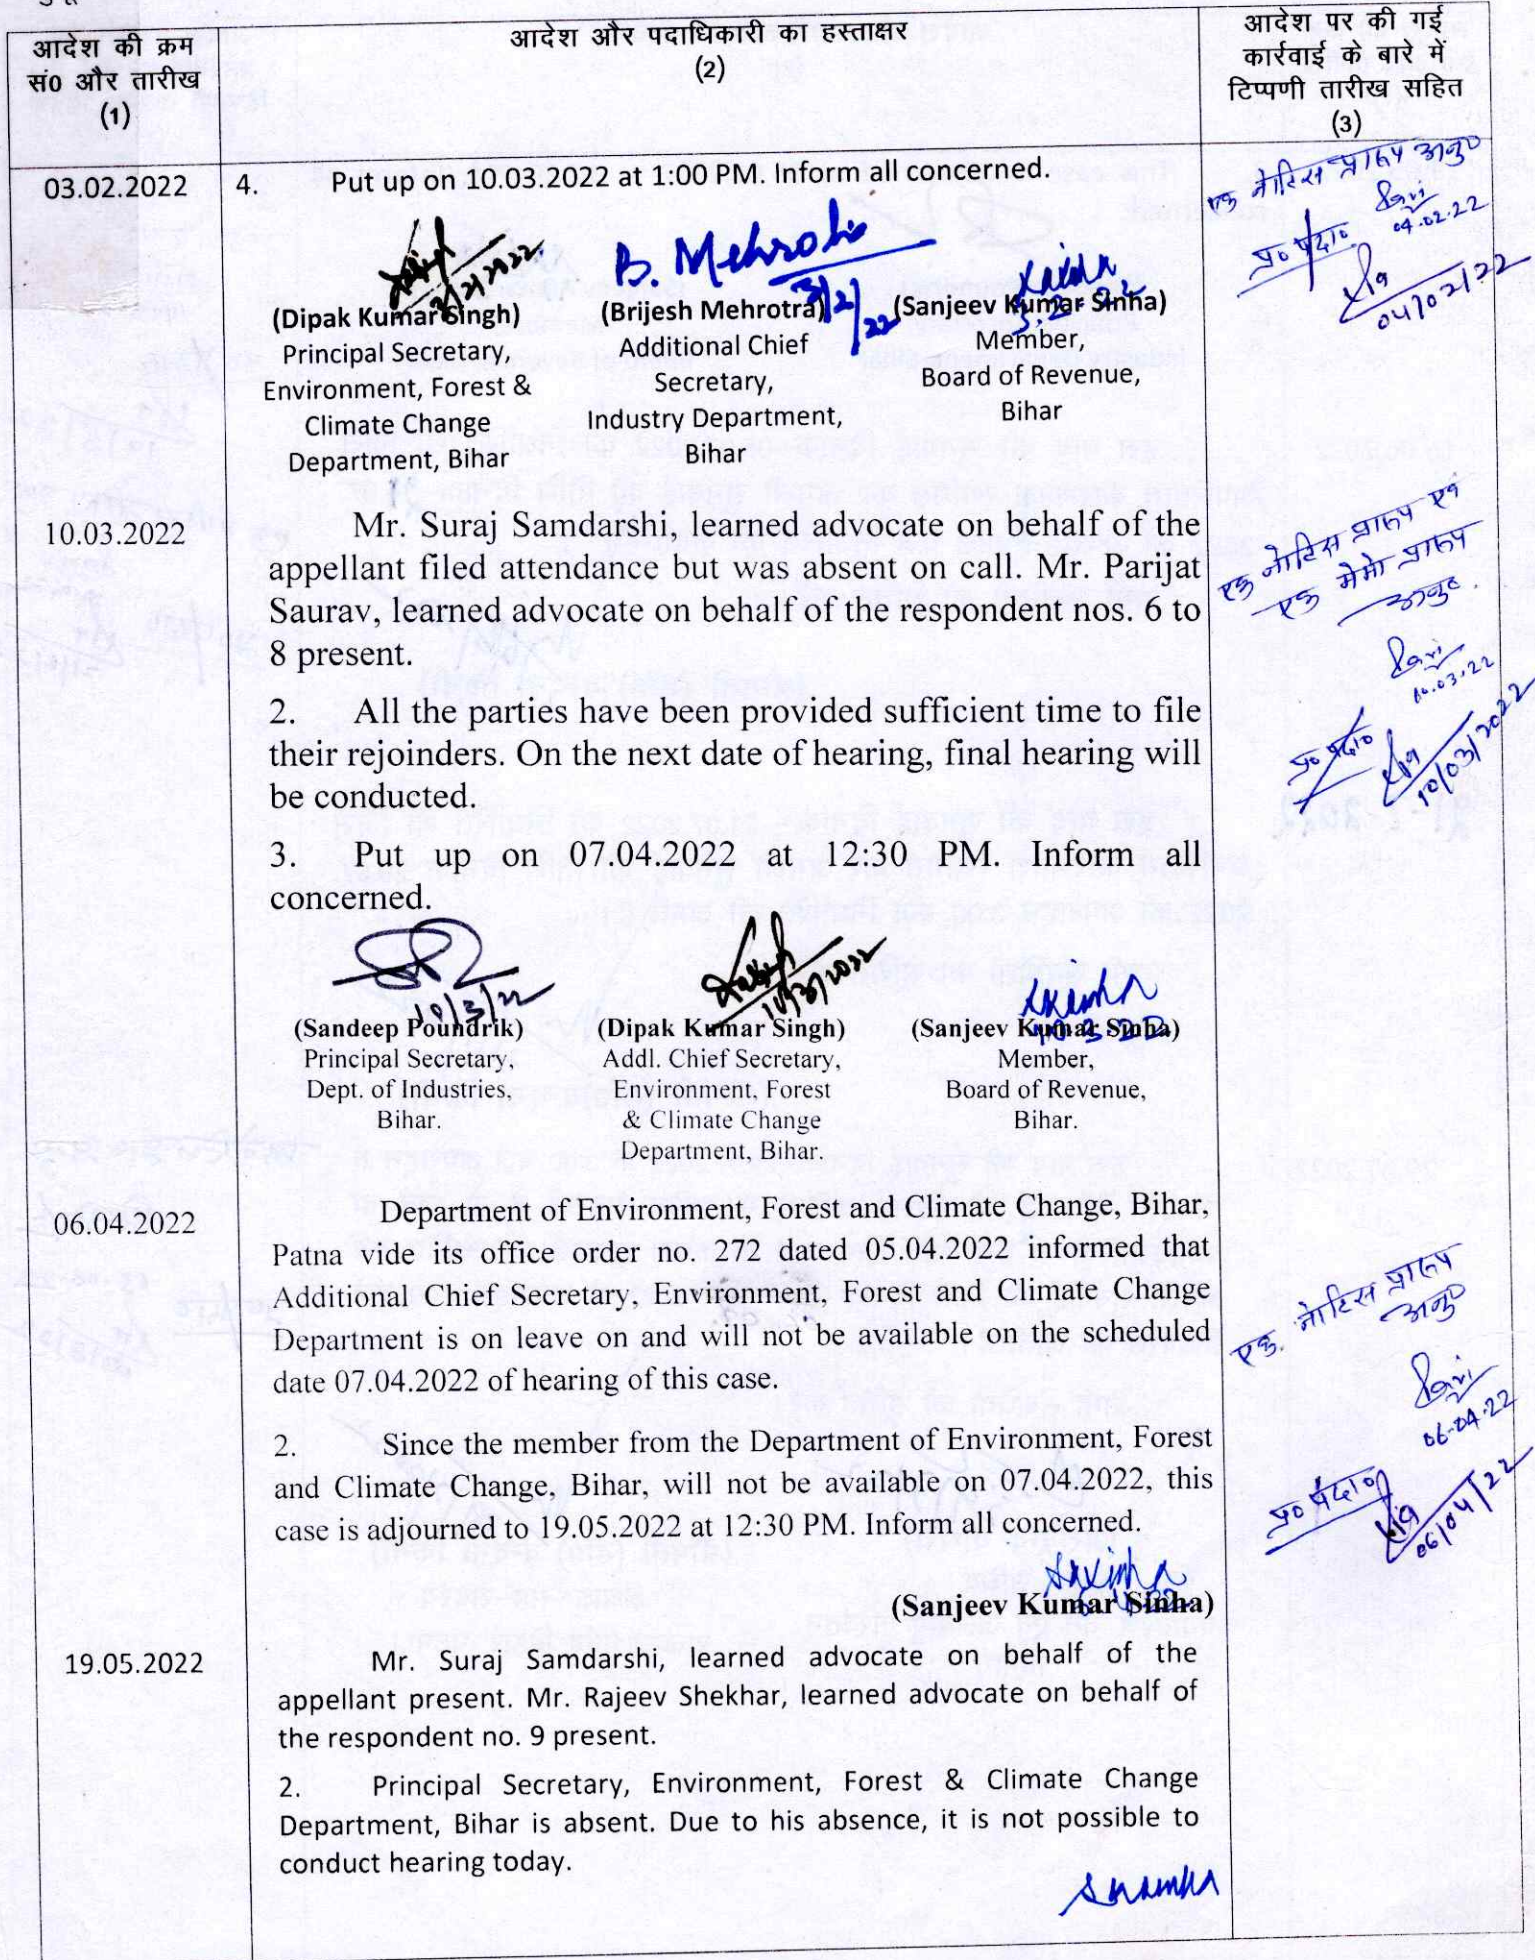 आदेश की क्रम
सं0 और तारीख
(1)
आदेश और पदाधिकारी का हस्ताक्षर
(2)
आदेश पर की गई
कार्रवाई के बारे में
टिप्पणी तारीख सहित
(3)
03.02.2022
4. Put up on 10.03.2022 at 1:00 PM. Inform all concerned.
एक नोटिस प्रारूप अनु०
04.02.22
प्र० पदा०
04/02/22
3/2/2022
B. Mehrotra
3/2/22
3.2.22
(Dipak Kumar Singh)
Principal Secretary,
Environment, Forest &
Climate Change
Department, Bihar
(Brijesh Mehrotra)
Additional Chief
Secretary,
Industry Department,
Bihar
(Sanjeev Kumar Sinha)
Member,
Board of Revenue,
Bihar
10.03.2022
Mr. Suraj Samdarshi, learned advocate on behalf of the
appellant filed attendance but was absent on call. Mr. Parijat
Saurav, learned advocate on behalf of the respondent nos. 6 to
8 present.
2. All the parties have been provided sufficient time to file
their rejoinders. On the next date of hearing, final hearing will
be conducted.
3. Put up on 07.04.2022 at 12:30 PM. Inform all
concerned.
एक नोटिस प्रारूप एवं
एक मेमो प्रारूप
अनु०.
10.03.22
प्र० पदा०
10/03/2022
10/3/22
10/3/2022
10.3.22
(Sandeep Poundrik)
Principal Secretary,
Dept. of Industries,
Bihar.
(Dipak Kumar Singh)
Addl. Chief Secretary,
Environment, Forest
& Climate Change
Department, Bihar.
(Sanjeev Kumar Sinha)
Member,
Board of Revenue,
Bihar.
06.04.2022
Department of Environment, Forest and Climate Change, Bihar,
Patna vide its office order no. 272 dated 05.04.2022 informed that
Additional Chief Secretary, Environment, Forest and Climate Change
Department is on leave on and will not be available on the scheduled
date 07.04.2022 of hearing of this case.
2. Since the member from the Department of Environment, Forest
and Climate Change, Bihar, will not be available on 07.04.2022, this
case is adjourned to 19.05.2022 at 12:30 PM. Inform all concerned.
एक नोटिस प्रारूप
अनु०
06.04.22
प्र० पदा०
06/04/22
(Sanjeev Kumar Sinha)
19.05.2022
Mr. Suraj Samdarshi, learned advocate on behalf of the
appellant present. Mr. Rajeev Shekhar, learned advocate on behalf of
the respondent no. 9 present.
2. Principal Secretary, Environment, Forest & Climate Change
Department, Bihar is absent. Due to his absence, it is not possible to
conduct hearing today.